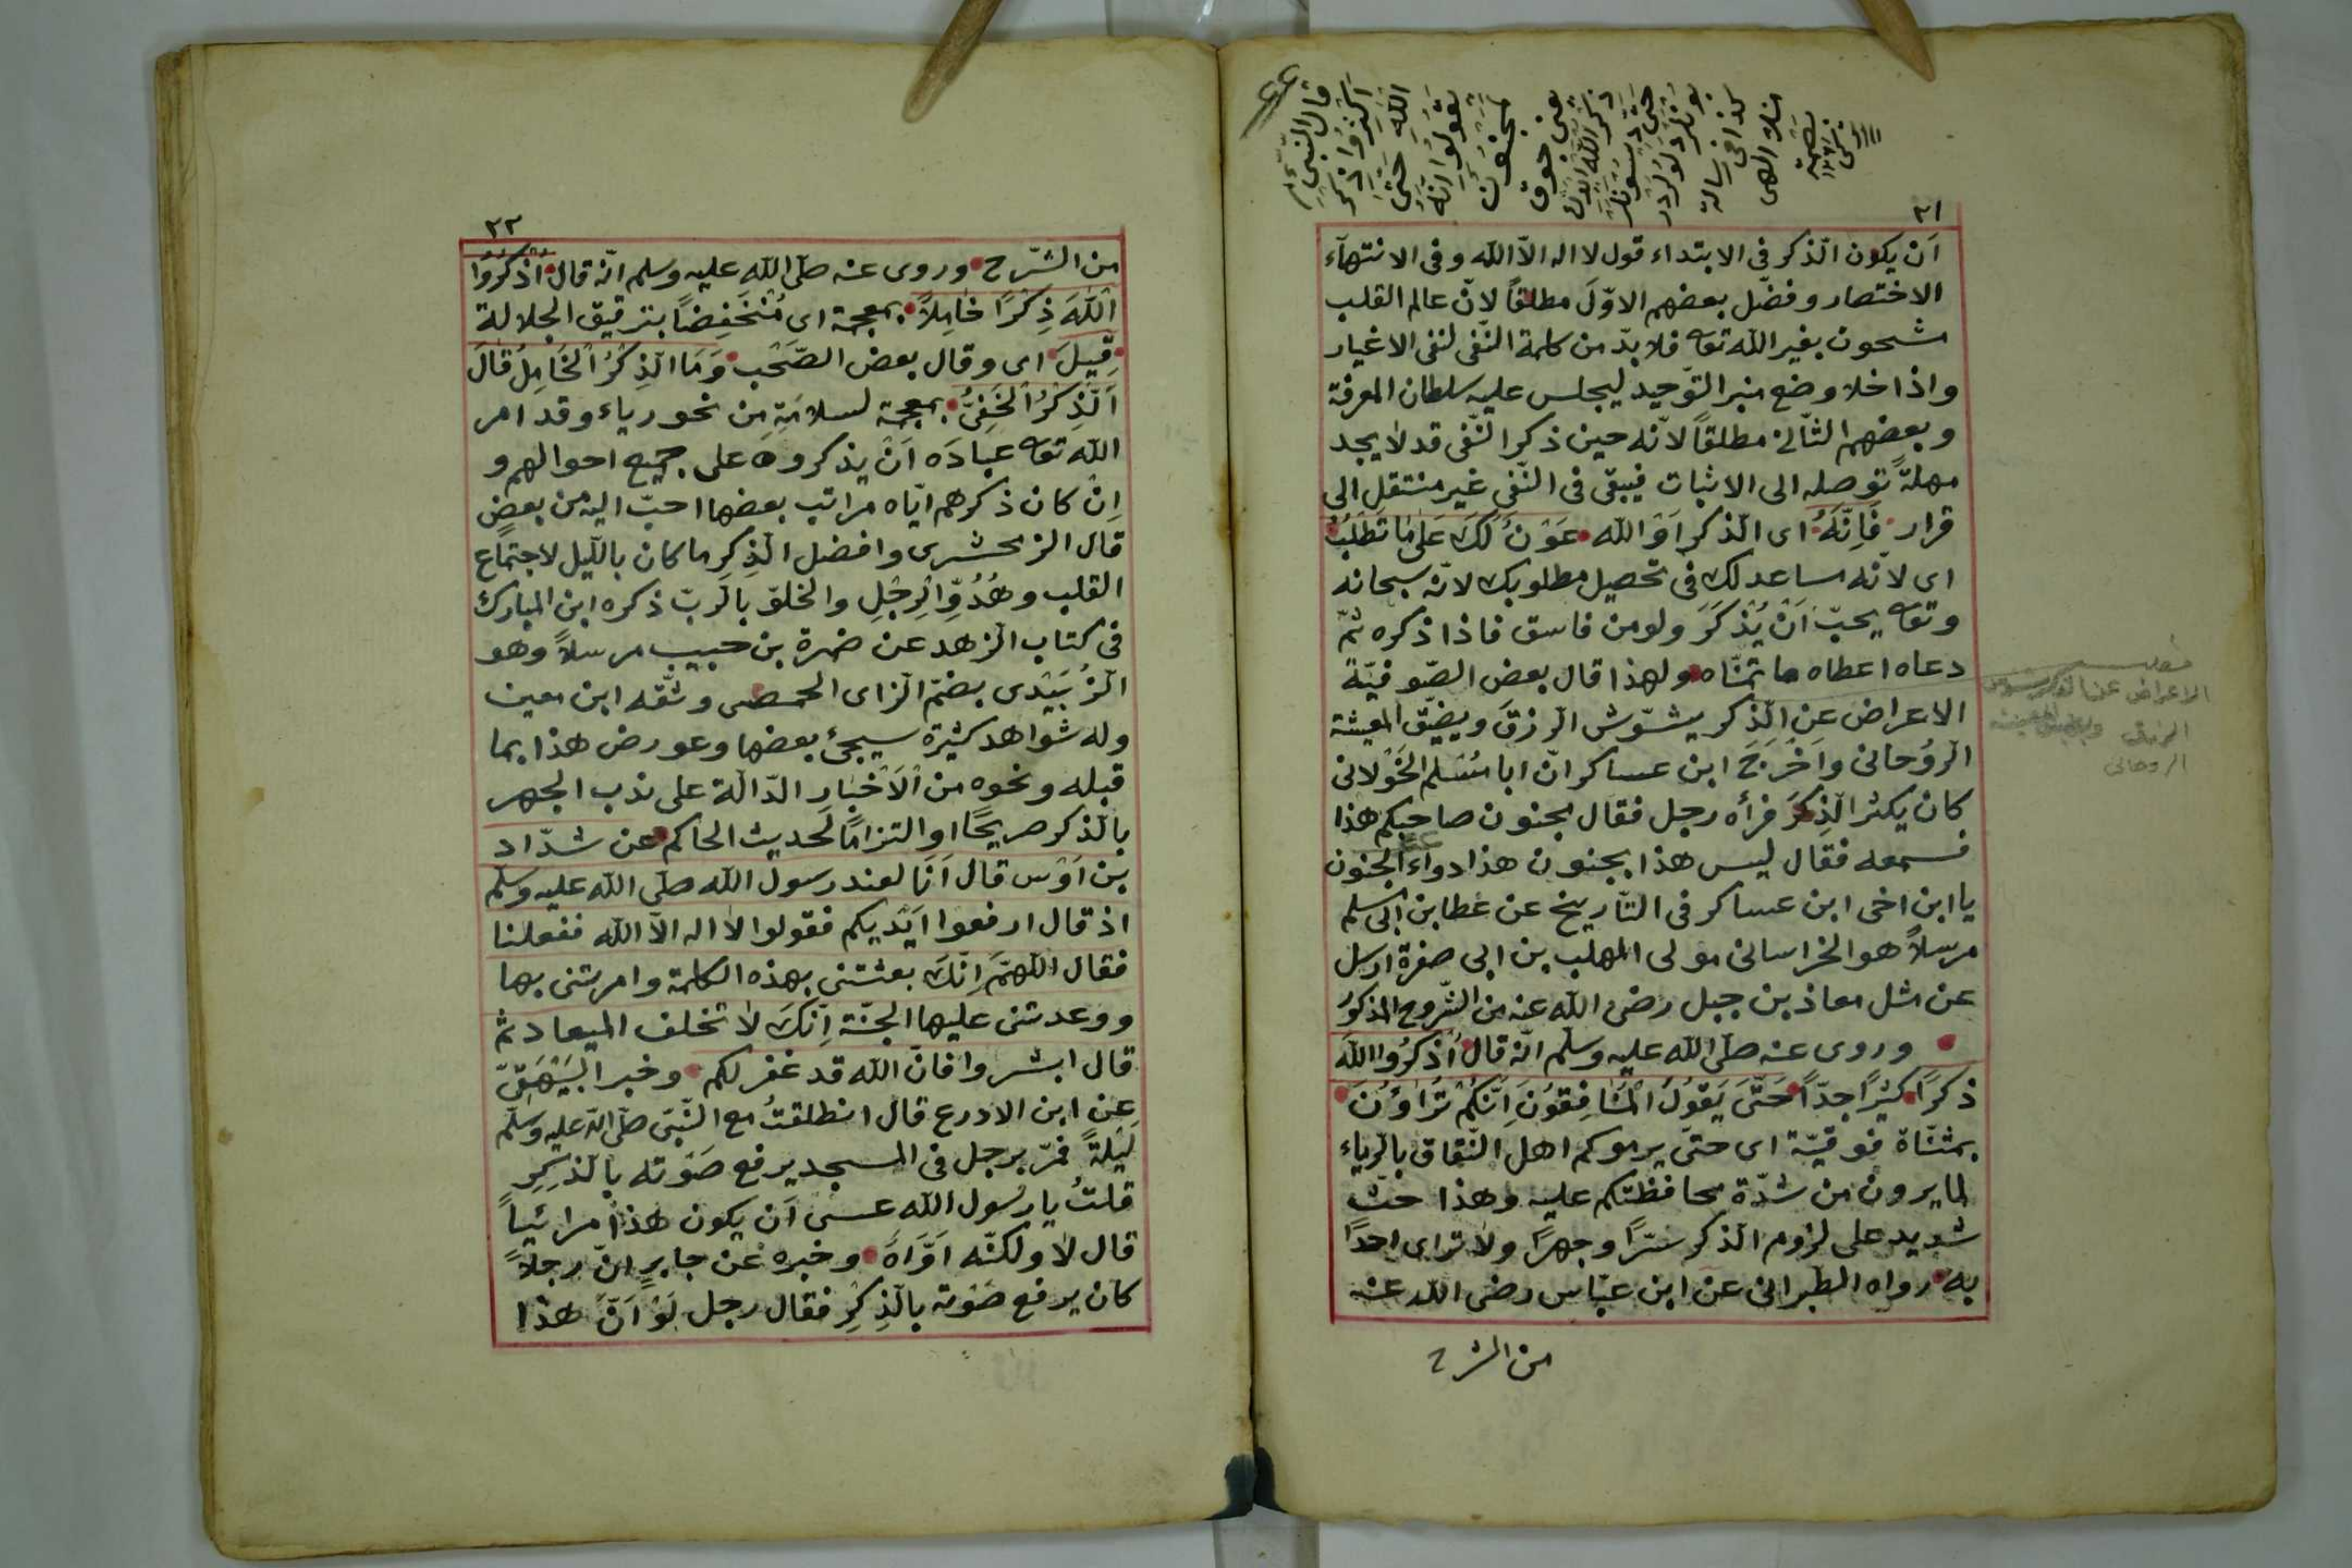 ٢١
اَن يكون الّذكر فى الابتداء قول لا اله الاّ الله وفى الانتهآء
الاختصار وفضّل بعضهم الاوّلَ مطلقاً لانّ عالم القلب
مشحون بغير الله تعه فلا بدّ من كلمة النّفى لنفى الاغيار
واذا خلا وضع منبر التّوحيد ليجلس عليه سلطان المعرفة
وبعضهم الثّانى مطلقاً لانّه حين ذكر النّفى قد لا يجد
مهلةً توصله الى الاثبات فيبقى فى النّفى غير منتقل الى
قرار فَاِنَّهُ اى الّذكر اَوْ الله عَوْنٌ لَكَ عَلَى مَا تَطْلُبُ
اى لانّه مساعد لك فى تحصيل مطلوبك لانّه سبحانه
وتعه يحبّ اَنْ يُذْكَرَ ولو من فاسق فاذا ذكره ثمّ
دعاه اعطاه ما تمنّاه ولهذا قال بعض الصّوفيّة
الاعراض عن الّذكر يشوّش الرزق ويضيّق المعيشة
الرّوُحانى واَخْرَجَ ابن عساكر انّ ابا مُسْلم الخَوْلانى
كان يكثر الذِكرَ فرأه رجل فقال مجنون صاحبكم هذا
فسمعه فقال ليس هذا بجنون هذا دواء الجنون
يا ابن اخى ابن عساكر فى التّاريخ عن عطا بن ابى مسلم
مرسلاً هو الخراسانى مولى المهلب بن ابى صفرة ارسل
عن مثل معاذ بن جبل رضى الله عنه من الشّروح المذكور
وروى عنه صلّى الله عليه وسلم انّه قال اُذْكُرُوا اللهَ
ذكرًا كثيرًا جدّاً حَتَّى يَقُولُ الْمُنَافِقُونَ اِنَّكُمْ تُرَاؤُنَ
بمثنّاة فوقيّة اى حتّى يرموكم اهل النّفاق بالرّياء
لما يرون من شدّة محافظتكم عليه وهذا حثّ
شديد على لزوم الّذكر سرًّا وجهرًا ولا تراى احدًا
به رواه الطّبرانى عن ابن عبّاس رضى الله عنه
من الشرح
قال النّبىّ
اَكْثِرُوا ذكر
الله حَتَّى
يَقُولُوا اِنَّهُ
مجنون
الاعراض عن الذكر
الرزق
الروحانى
٢٢
من الشّرح وروى عنه صلّى الله عليه وسلم انّه قال اُذْكُرُوُا
اللهَ ذِكْرًا خَامِلاً بمعجمة اى مُنْخَفِضًا بترقيق الجلالة
قِيلَ اى وقال بعض الصّحْب وَمَا الّذِكْرُ الْخَامِلُ قَالَ
اَلّذِكْرُ الْخَفِىُّ بمعجمة لسلامَتِهِ مِن نحو رياء وقد امر
الله تعه عبَادَه اَنْ يذكروه على جميع احوالهم و
اِنْ كان ذكرهم ايّاه مراتب بعضها احبّ اليه من بعض
قال الزمخشرى وافضل الّذِكر ما كان بالّليل لاجتماع
القلب وهُدُوِّ الرِجْلِ والخلوّ بالرّبّ ذكره ابن المبارك
فى كتاب الزهد عن ضمرة بن حبيب مرسلاً وهو
الزُبَيْدى بضمّ الزاى الحمصى وثّقه ابن معين
وله شواهد كثيرة سيجئ بعضها وعورض هذا بما
قبله ونحوه من اْلاَخْبَارِ الدّالّة على ندب الجهر
بالّذكر صريحًا او التزامًا لحديث الحاكم عن شدّاد
بن اَوْس قال اَنَا لعند رسول الله صلّى الله عليه وسلّم
اذ قال ارفعوا اَيْديكم فقولوا لا اله الاّ الله ففعلنا
فقال اللّهمّ اِنّكَ بعثتنى بهذه الكلمة وامرتنى بها
ووعدتنى عليها الجنّة اِنّكَ لا تخلف الميعاد ثمّ
قال ابشروا فانّ الله قد غفر لكم وخبر البَيْهَقِىّ
عن ابن الادرع قال انطلقتُ مع النّبىّ صلّى الله عليه وسلّم
لَيْلةً فمّر برجل فى المسجد يرفع صَوْته بالّذكِرِ
قلتُ يا رسُول الله عسى اَن يكون هذا مرائياً
قال لا ولكنّه اَوّاهٌ وخبره عن جابرٍ انّ رجلاً
كان يرفع صَوْته بالّذِكرِ فقال رجل لَوْ اَنّ هذا